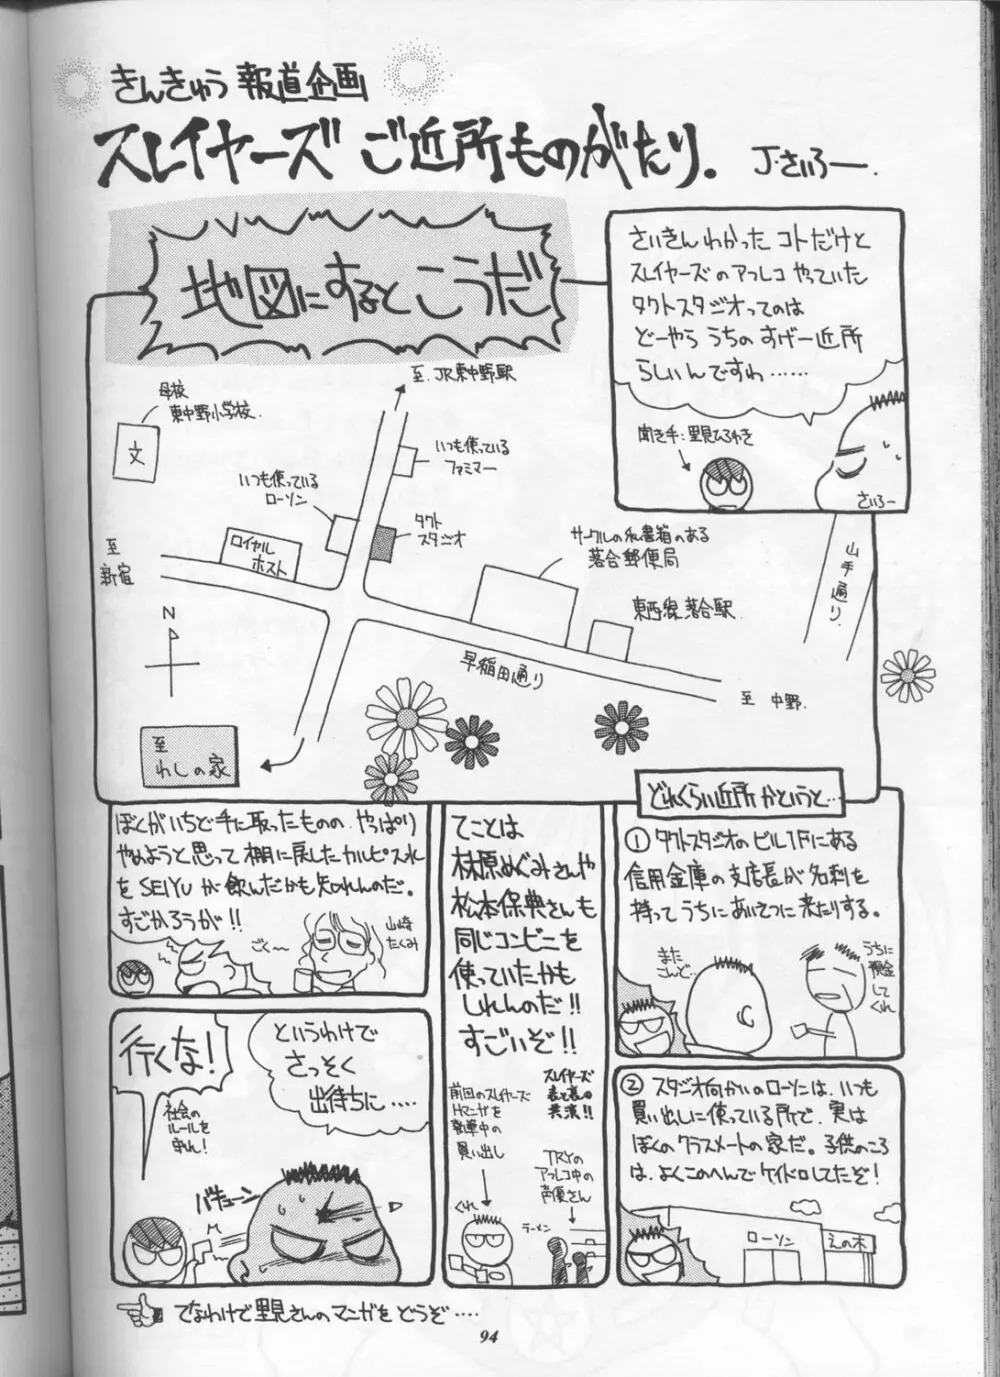 きんきゅう報道企画
スレイヤーズ ご近所ものがたり。
J・さいろー.
さいきんわかったコトだけど
スレイヤーズのアフレコやっていた
タクトスタジオってのは
どーやらうちのすげー近所
らしいんですわ……
聞き手:里見ひろゆき
さいろー
地図にするとこうだ
至.JR東中野駅
母校
東中野小学校.
文
いつも使っている
ファミマー
いつも使っている
ローソン
タクト
スタジオ
ロイヤル
ホスト
至
新宿
N
サークルの私書箱のある
落合郵便局
東西線落合駅.
山手通り.
早稲田通り
至 中野.
至
わしの家
どれくらい近所かというと…
① タクトスタジオのビル1Fにある
信用金庫の支店長が名刺を
持ってうちにあいさつに来たりする。
また
こんど…
うちに
預金
して
くれ
② スタジオ向かいのローソンは、いつも
買い出しに使っている所で、実は
ぼくのクラスメートの家だ。子供のころ
は、よくこのへんでケイドロしてたぞ!
ローソン
えの木
てことは
林原めぐみさんや
松本保典さんも
同じコンビニを
使っていたかも
しれんのだ!!
すごいぞ!!
スレイヤーズ
表と裏の
共演!!
前回のスレイヤーズ
Hマンガを
執筆中の
買い出し
TRYの
アフレコ中の
声優さん
くれ
ラーメン
ぼくがいちど手に取ったものの、やっぱり
やめようと思って棚に戻したカルピス水
をSEIYUが飲んだかも知れんのだ。
すごかろうが!!
ごく〜
山崎
たくみ
というわけで
さっそく
出待ちに……
行くな!
社会の
ルールを
守れ!
バキューン
てなわけで里見さんのマンガをどうぞ……
94